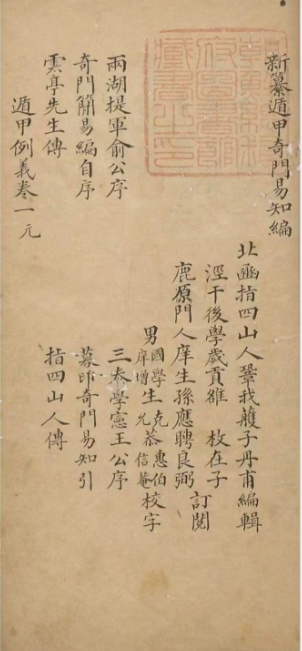 新纂遁甲奇門易知編
北函指四山人鞏我艧子丹甫編輯
涇干後學歲貢雒 枚在子 訂閱
鹿原門人庠生孫應聘良弼
男 國學生 克恭惠伯 校字
庠增 允 信菴
兩湖提軍俞公序 三秦學憲王公序
奇門簡易編自序 募印奇門易知引
雲亭先生傳 指四山人傳
遁甲例義卷一元